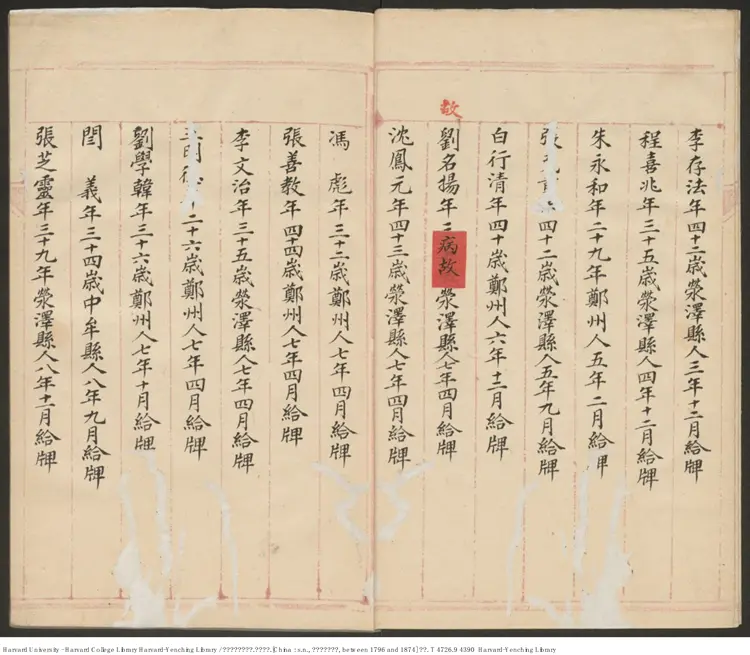 李存法年四十二歲滎澤縣人三年十二月給牌
程喜兆年三十五歲滎澤縣人四年十二月給牌
朱永和年二十九年鄭州人五年二月給牌
張 四十二歲滎澤縣人五年九月給牌
白行清年四十歲鄭州人六年十二月給牌
故
劉名揚年三
病故
滎澤縣人七年四月給牌
沈鳳元年四十三歲滎澤縣人七年四月給牌
馮彪年三十二歲鄭州人七年四月給牌
張善教年四十四歲鄭州人七年四月給牌
李文治年三十五歲滎澤縣人七年四月給牌
二十六歲鄭州人七年四月給牌
劉學韓年三十六歲鄭州人七年十月給牌
閆義年三十四歲中牟縣人八年九月給牌
張芝靈年三十九年滎澤縣人八年十一月給牌
Harvard University - Harvard College Library Harvard-Yenching Library / ????????.????. [China : s.n., ???????, between 1796 and 1874] ??. T 4726.9 4390 Harvard-Yenching Library